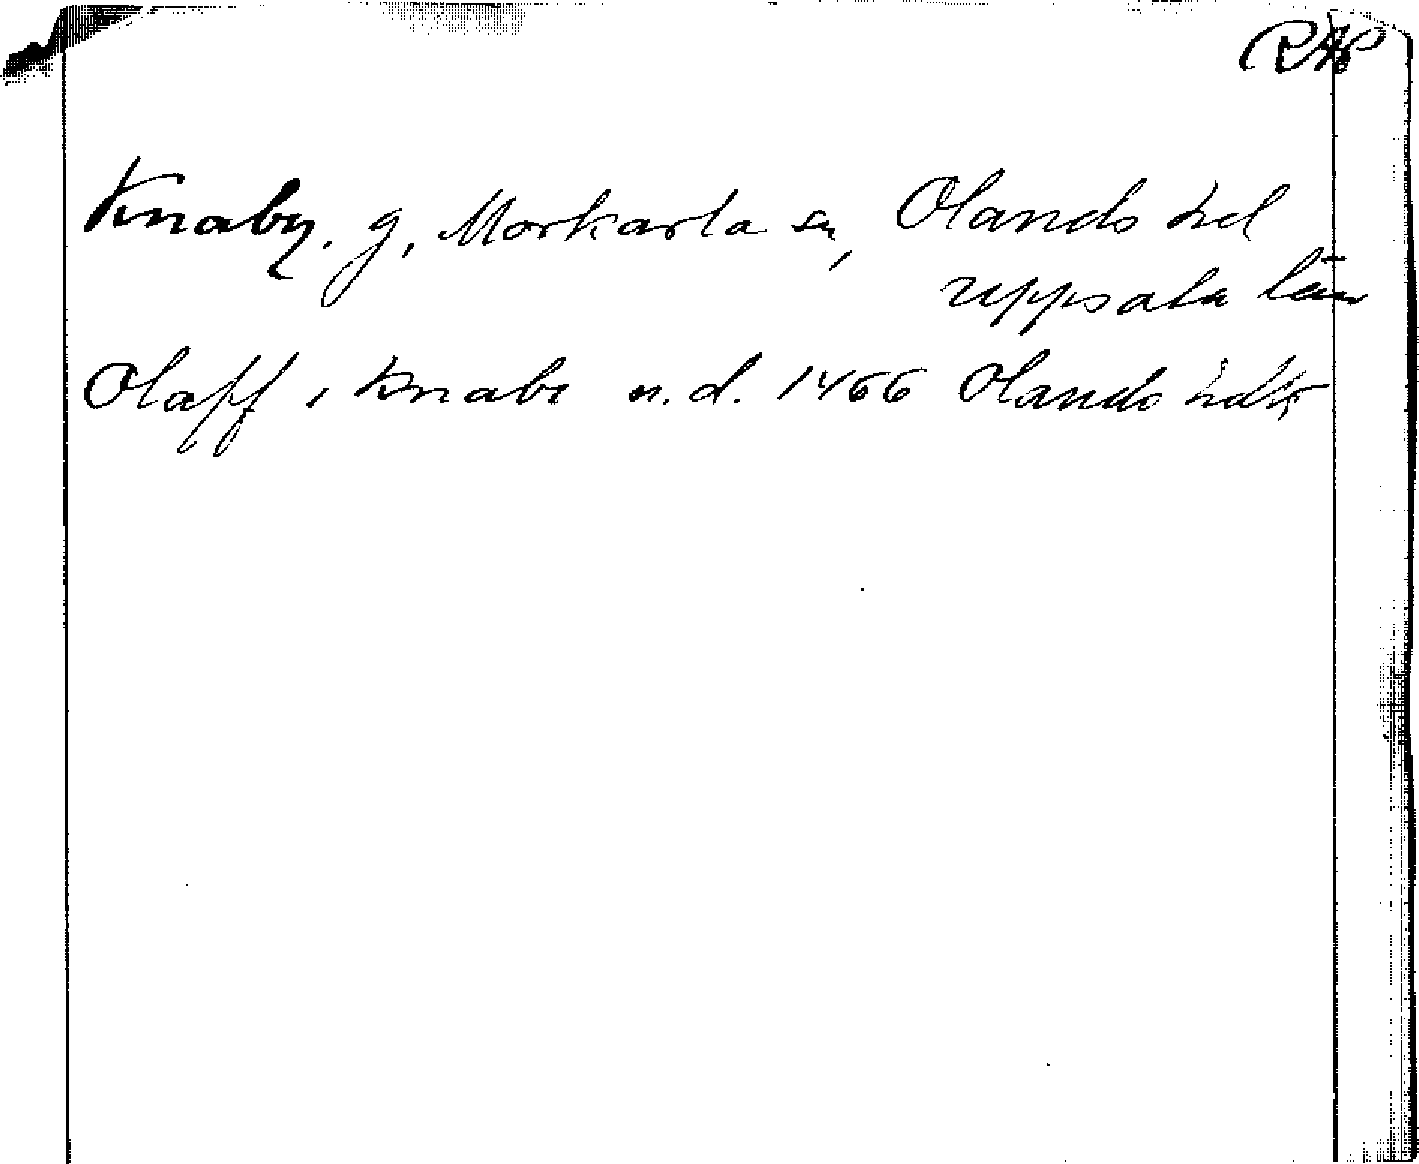 RAP
Knaby. g, Morkarla sn, Olands hd
Uppsala län
Olaff i Knabi n.d. 1466 Olands hdk